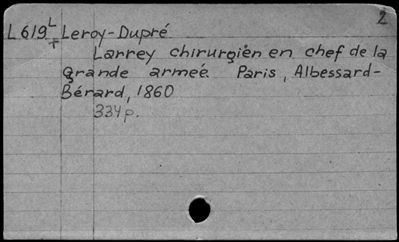 2
L619L Leroy-Dupré
+ Larrey chirurgien en chef de la
grande armeé. Paris, Albessard-
Bérard, 1860
334p.